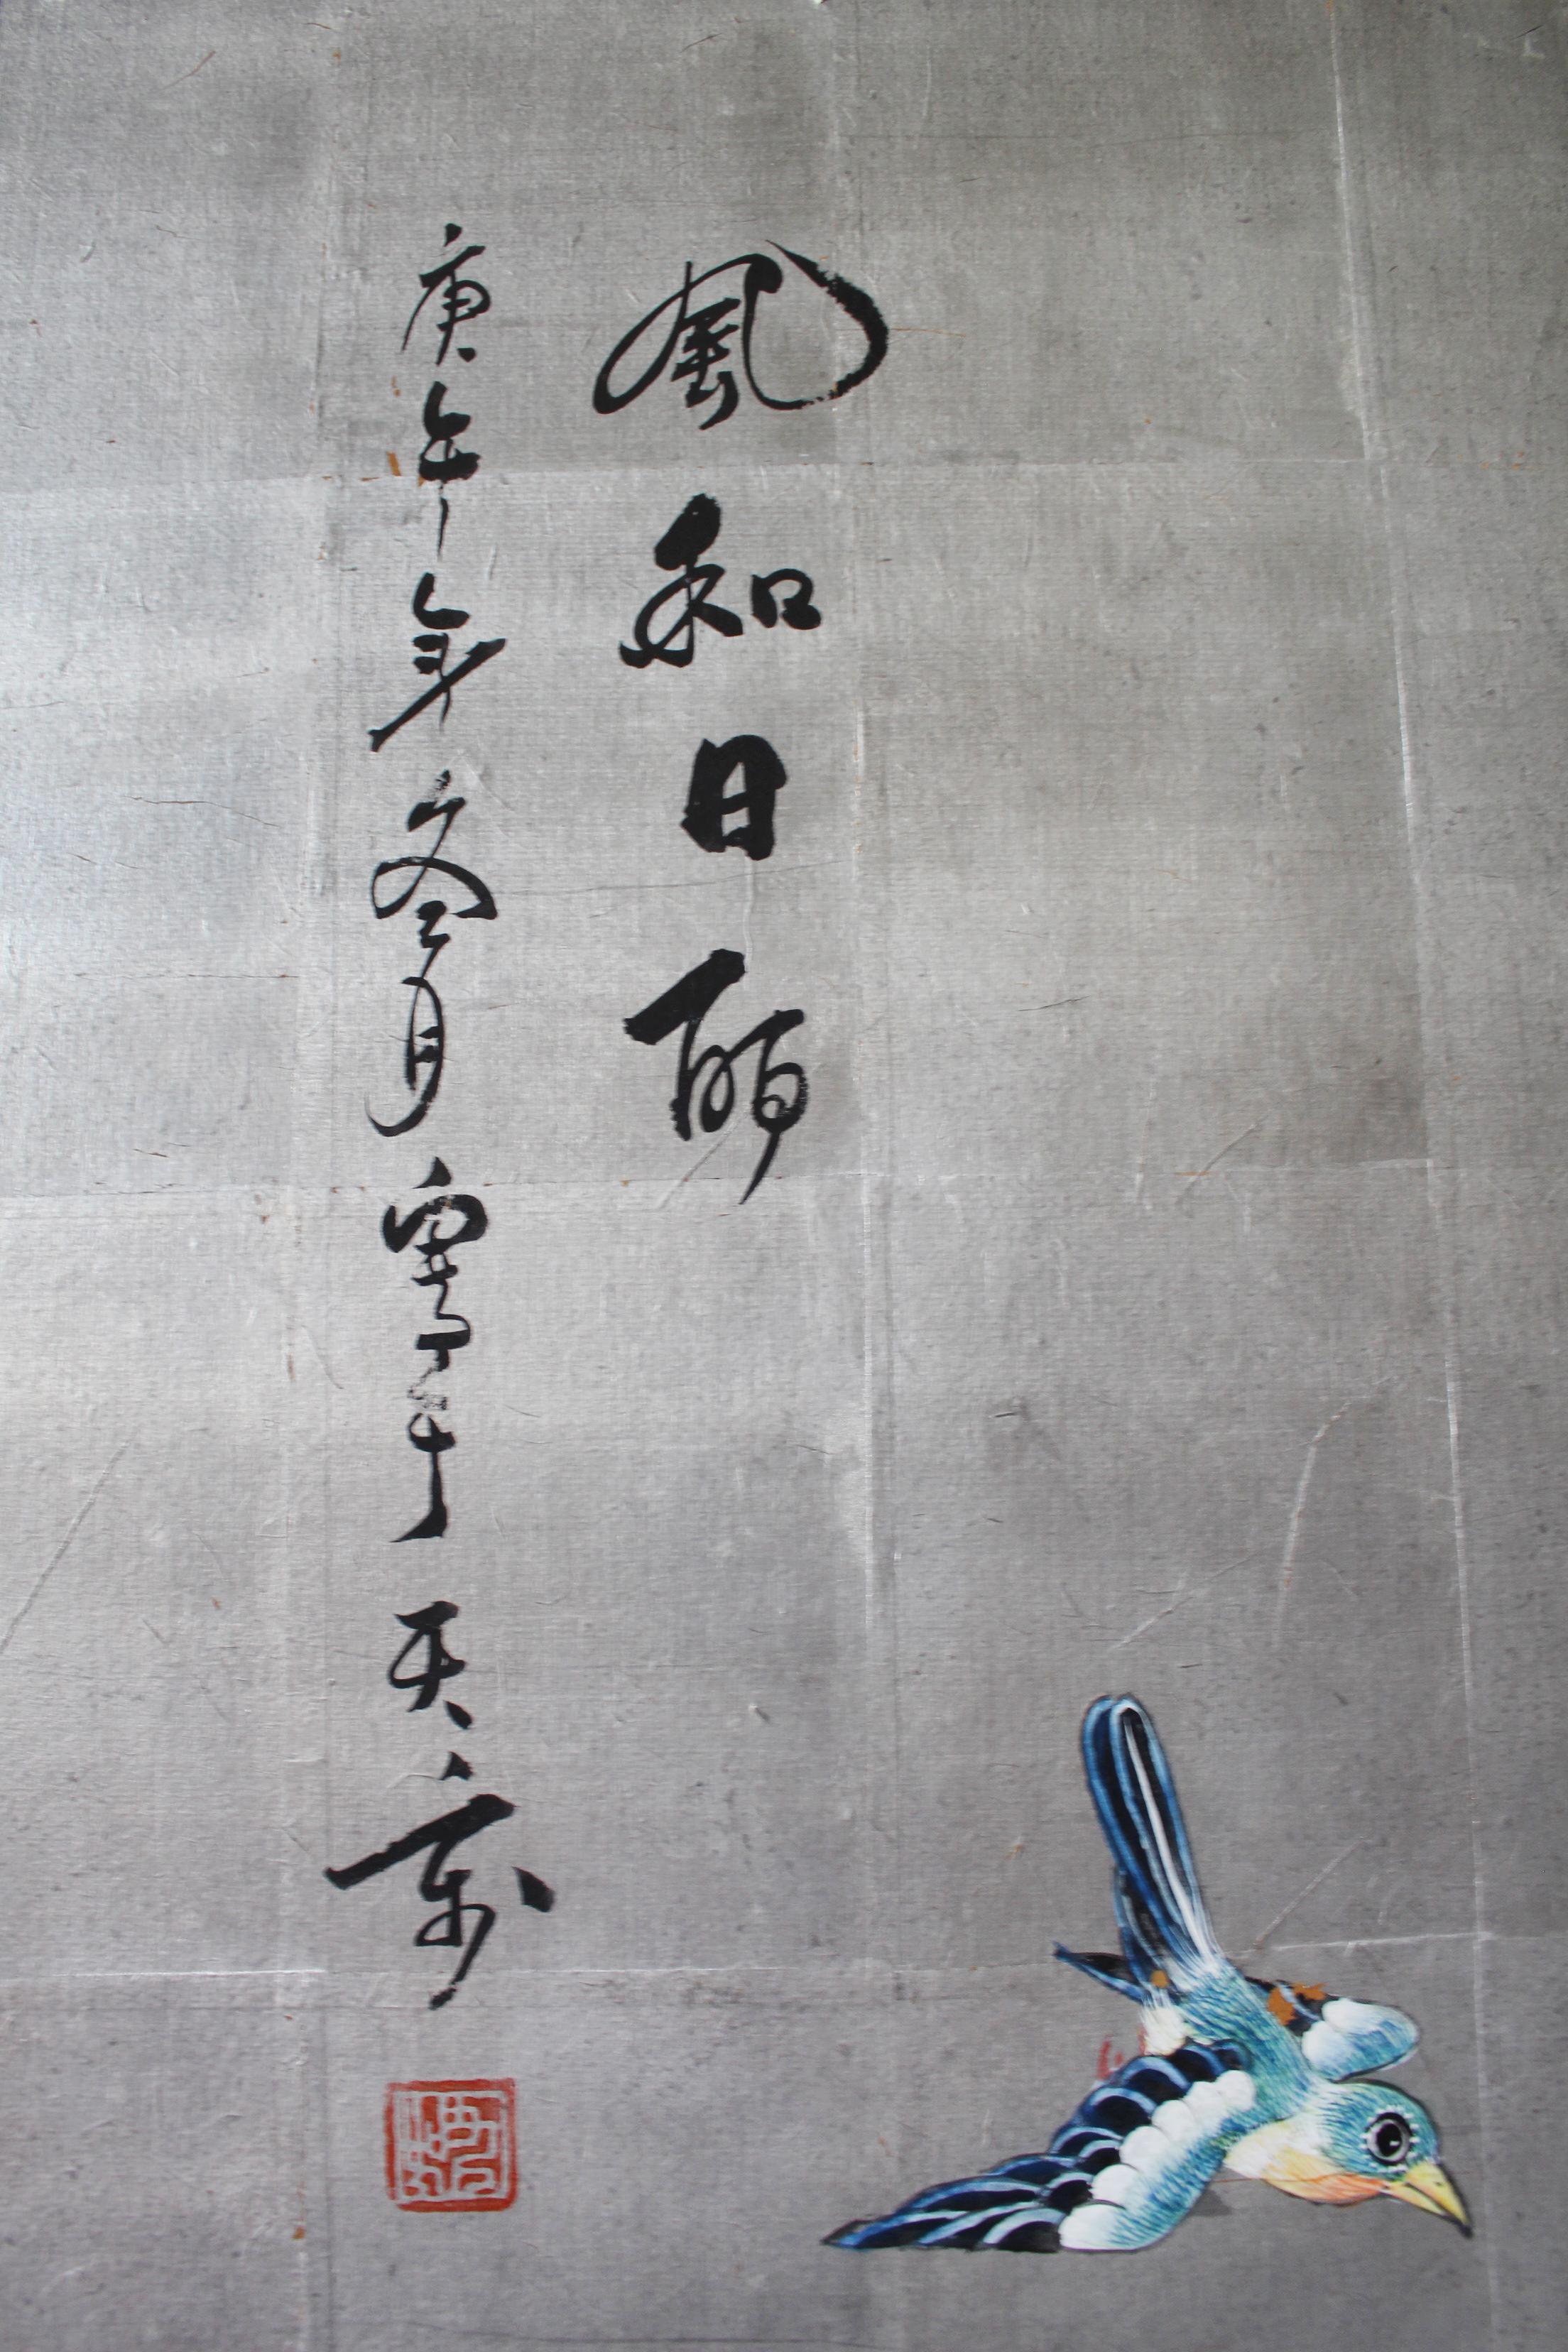 風和日麗
庚午年冬月寫于天京